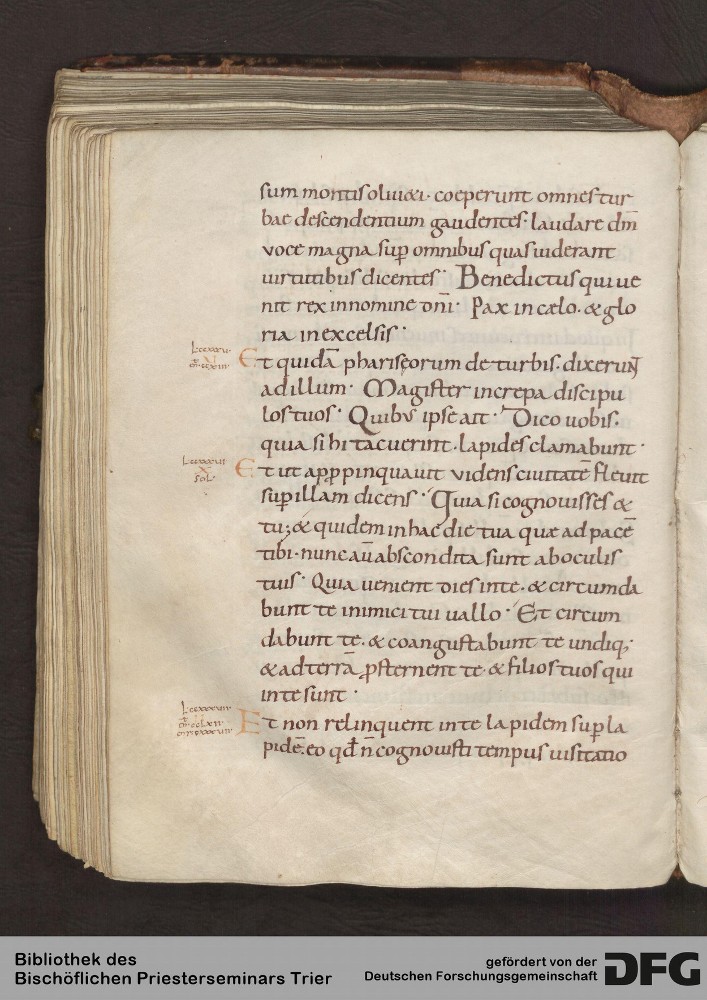 sum montis oliu&i · coeperunt omnes tur
bae descendentium gaudentes · laudare dm̄
voce magna sup̄ omnibus quas uiderant
uirtutibus dicentes · Benedictus qui ue
nit rex in nomine dnī · Pax in cælo · & glo
ria in excelsis ·
Et quidā phariseorum de turbis · dixerunt
ad illum · Magister increpa discipu
los tuos · Quibus ipse ait · Dico uobis ·
quia si hi tacuerint · lapides clamabunt ·
Et ut apprpinquauit videns ciuitatē fleuit
sup̄ illam dicens · Quia si cognouisses &
tu; & quidem in hac die tua quæ ad pacē
tibi · nunc aū abscondita sunt ab oculis
tuis · Quia uenient dies in te · & circumda
bunt te inimici tui uallo · Et circum
dabunt te · & coangustabunt te undiq;
& ad terrā p̱sternent te · & filios tuos qui
in te sunt ·
Et non relinquent in te lapidem sup̄ la
pidē · eo qđ n̄ cognouisti tempus uisitatio
Bibliothek des
Bischöflichen Priesterseminars Trier
gefördert von der
Deutschen Forschungsgemeinschaft
DFG